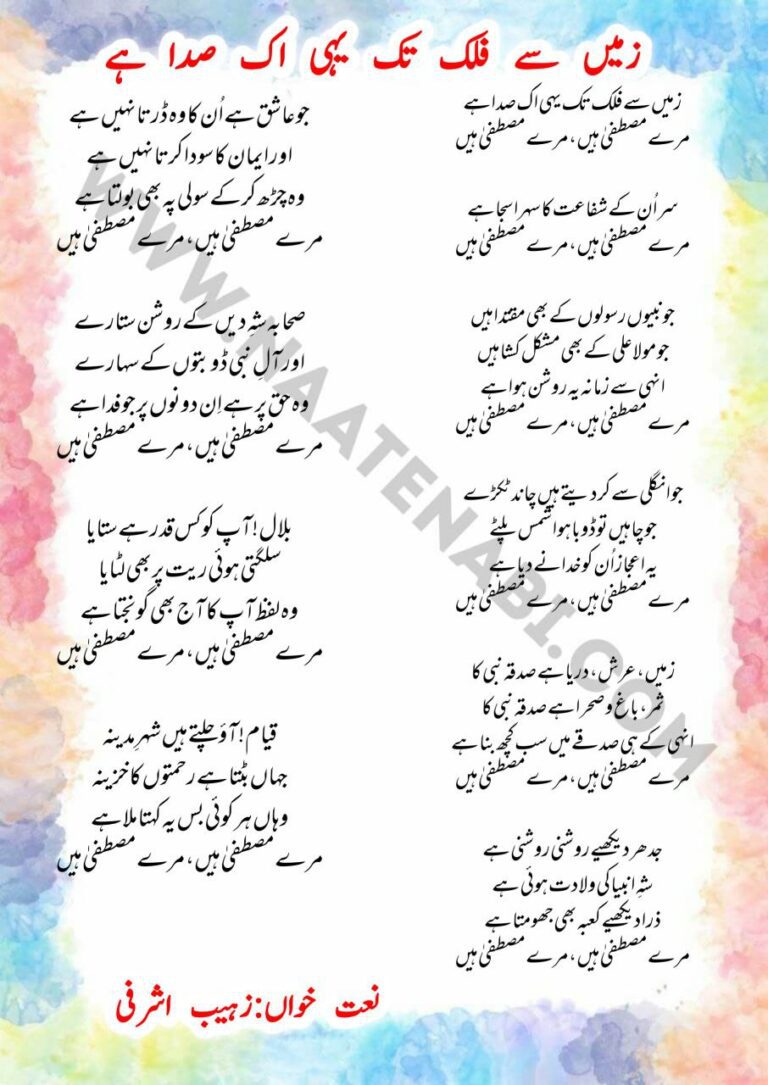 زمیں سے فلک تک یہی اک صدا ہے
زمیں سے فلک تک یہی اک صدا ہے
مرے مصطفیٰ ہیں، مرے مصطفیٰ ہیں
سر اُن کے شفاعت کا سہرا سجا ہے
مرے مصطفیٰ ہیں، مرے مصطفیٰ ہیں
جو نبیوں رسولوں کے بھی مقتدا ہیں
جو مولا علی کے بھی مشکل کشا ہیں
انہی سے زمانہ یہ روشن ہوا ہے
مرے مصطفیٰ ہیں، مرے مصطفیٰ ہیں
جو انگلی سے کر دیتے ہیں چاند ٹکڑے
جو چاہیں تو ڈوبا ہوا شمس پلٹے
یہ اعجاز اُن کو خدا نے دیا ہے
مرے مصطفیٰ ہیں، مرے مصطفیٰ ہیں
زمیں، عرش، دریا ہے صدقہ نبی کا
ثمر، باغ و صحرا ہے صدقہ نبی کا
انہی کے ہی صدقے میں سب کچھ بنا ہے
مرے مصطفیٰ ہیں، مرے مصطفیٰ ہیں
جدھر دیکھیے روشنی روشنی ہے
شہِ انبیا کی ولادت ہوئی ہے
ذرا دیکھیے کعبہ بھی جھومتا ہے
مرے مصطفیٰ ہیں، مرے مصطفیٰ ہیں
جو عاشق ہے اُن کا وہ ڈرتا نہیں ہے
اور ایمان کا سودا کرتا نہیں ہے
وہ چڑھ کر کے سولی پہ بھی بولتا ہے
مرے مصطفیٰ ہیں، مرے مصطفیٰ ہیں
صحابہ شہِ دیں کے روشن ستارے
اور آلِ نبی ڈوبتوں کے سہارے
وہ حق پر ہے اِن دونوں پر جو فدا ہے
مرے مصطفیٰ ہیں، مرے مصطفیٰ ہیں
بلال! آپ کو کس قدر ہے ستایا
سلگتی ہوئی ریت پر بھی لٹایا
وہ لفظ آپ کا آج بھی گونجتا ہے
مرے مصطفیٰ ہیں، مرے مصطفیٰ ہیں
قیام! آؤ چلتے ہیں شہرِ مدینہ
جہاں بٹتا ہے رحمتوں کا خزینہ
وہاں ہر کوئی بس یہ کہتا ملا ہے
مرے مصطفیٰ ہیں، مرے مصطفیٰ ہیں
نعت خواں: زہیب اشرفی
WWW.NAATENABI.COM